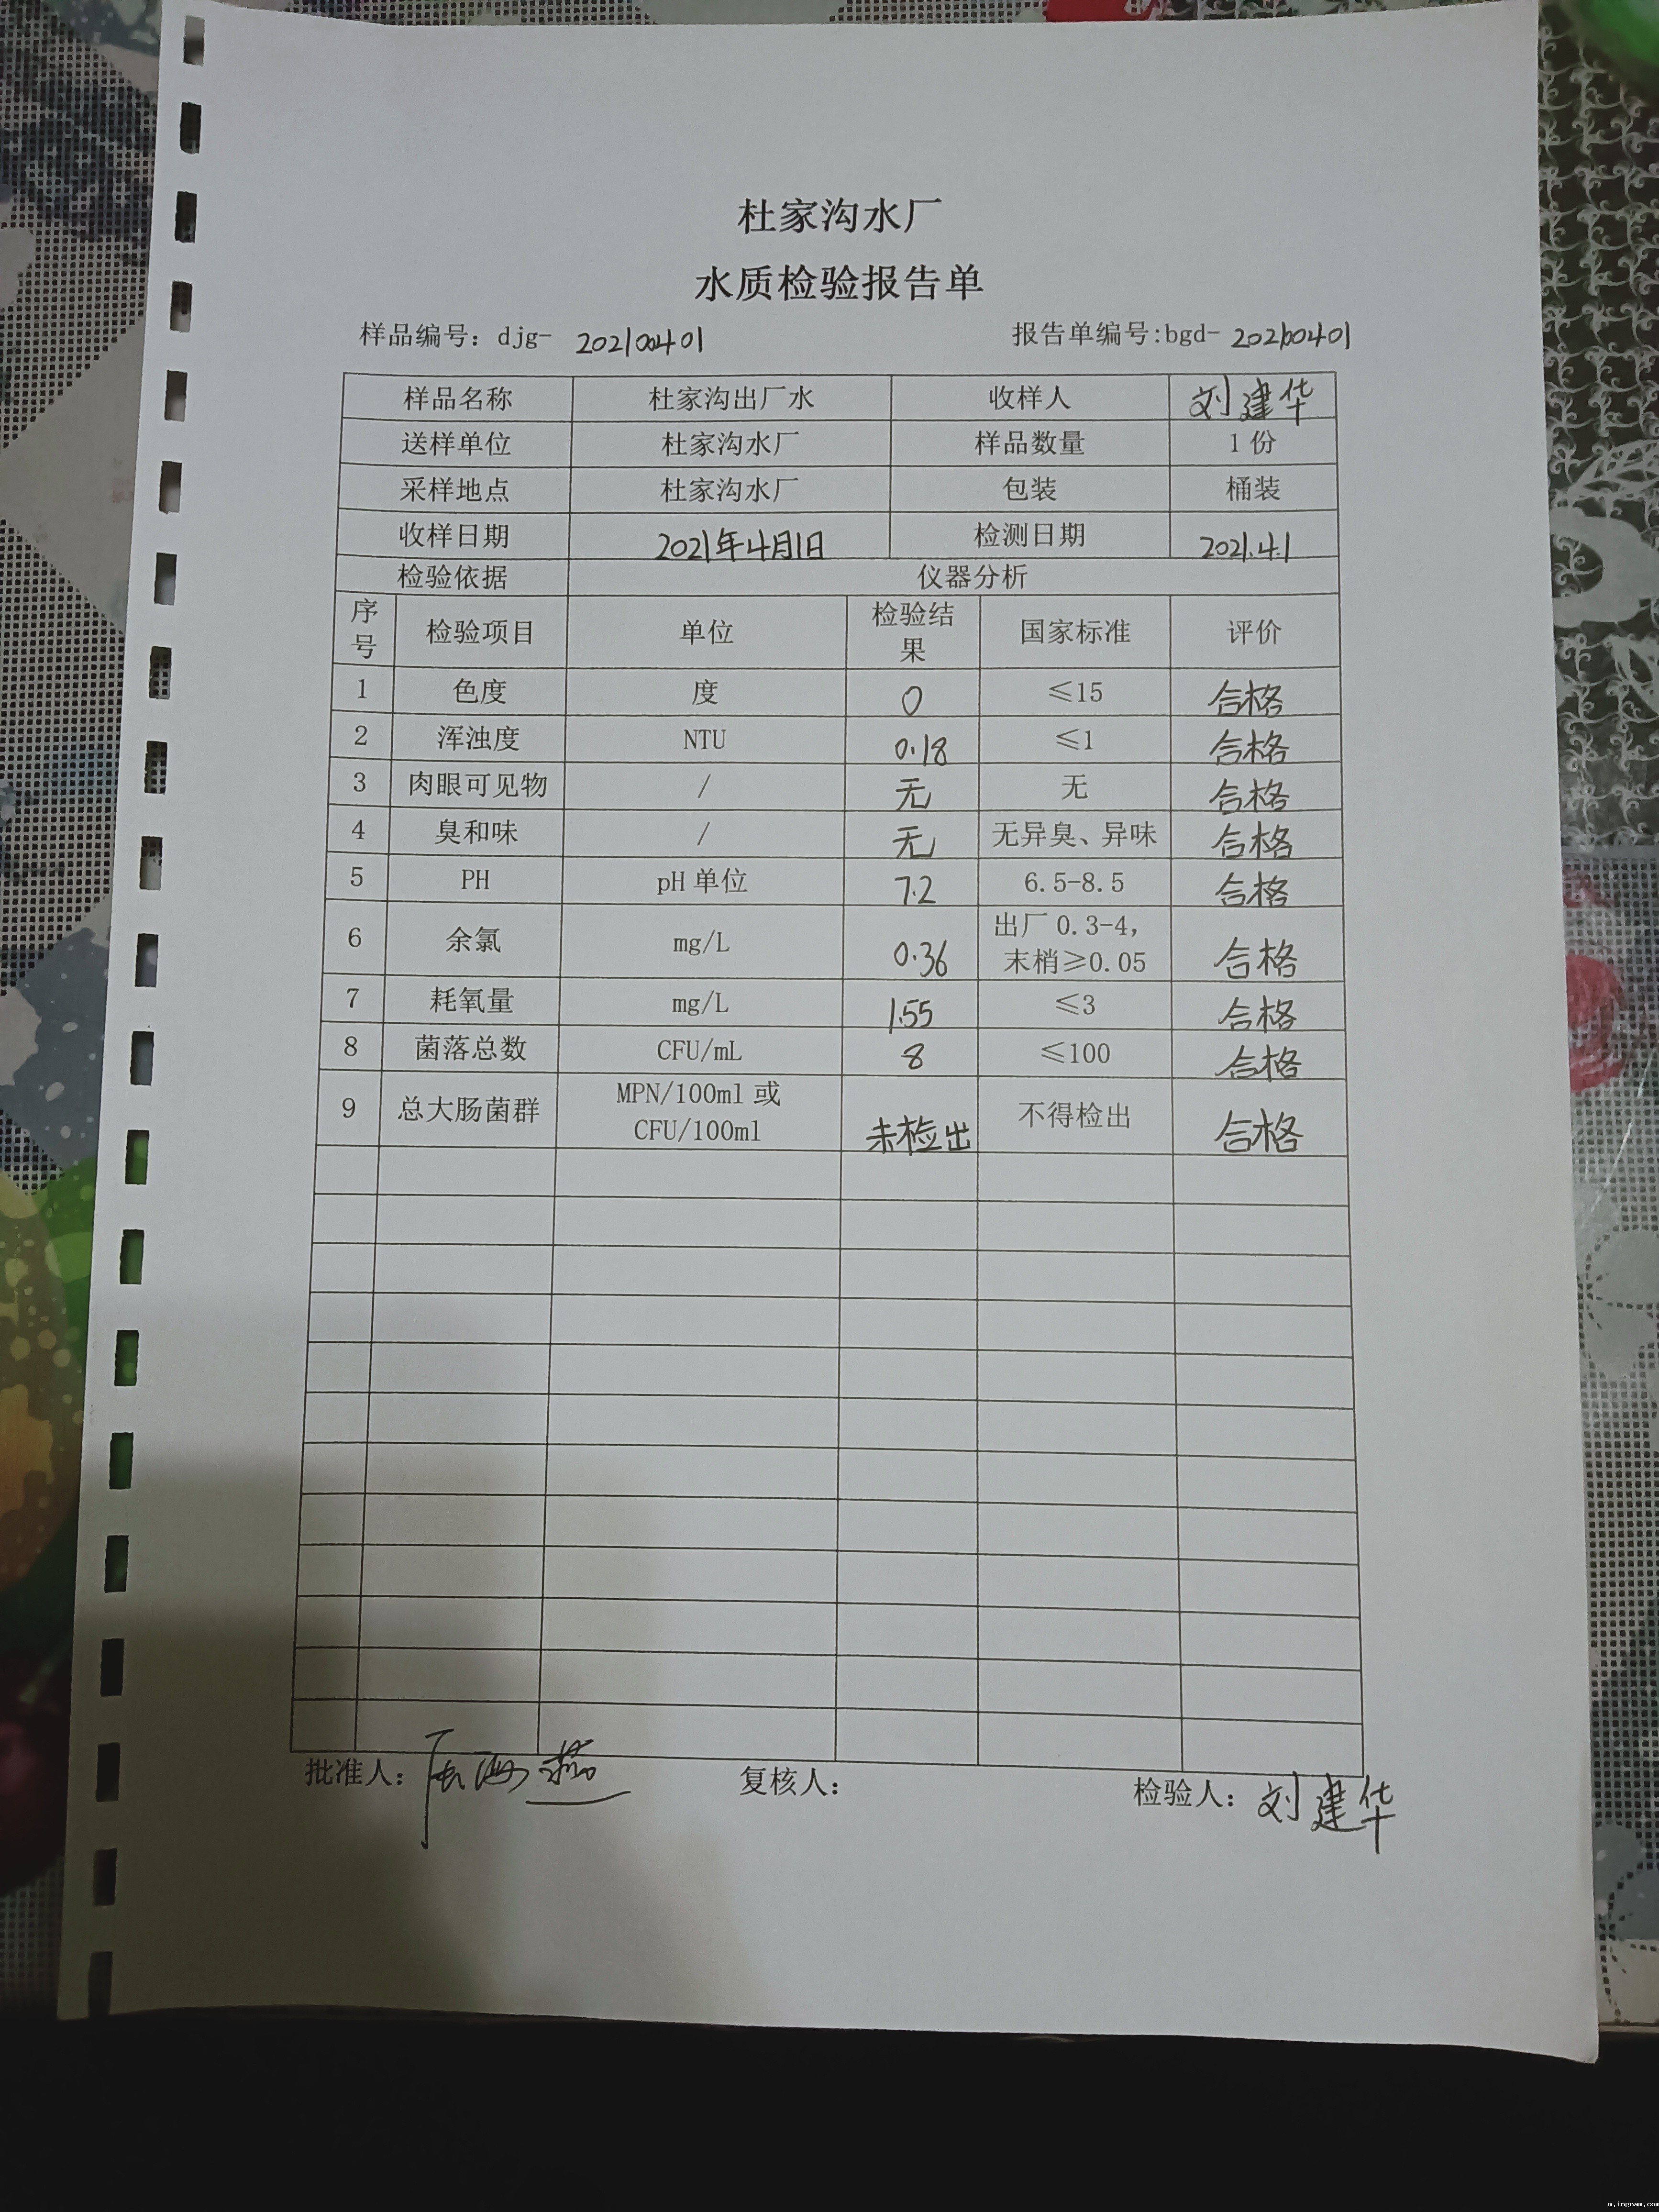 杜家沟水厂
水质检验报告单
样品编号：djg- 202100401 报告单编号:bgd- 202100401
样品名称 杜家沟出厂水 收样人 刘建华
送样单位 杜家沟水厂 样品数量 1份
采样地点 杜家沟水厂 包装 桶装
收样日期 2021年4月1日 检测日期 2021.4.1
检验依据 仪器分析
序号 检验项目 单位 检验结果 国家标准 评价
1 色度 度 0 ≤15 合格
2 浑浊度 NTU 0.18 ≤1 合格
3 肉眼可见物 / 无 无 合格
4 臭和味 / 无 无异臭、异味 合格
5 PH pH单位 7.2 6.5-8.5 合格
6 余氯 mg/L 0.36 出厂0.3-4，末梢≥0.05 合格
7 耗氧量 mg/L 1.55 ≤3 合格
8 菌落总数 CFU/mL 8 ≤100 合格
9 总大肠菌群 MPN/100ml或CFU/100ml 未检出 不得检出 合格
批准人： 复核人： 检验人：刘建华
m.ingnam.com